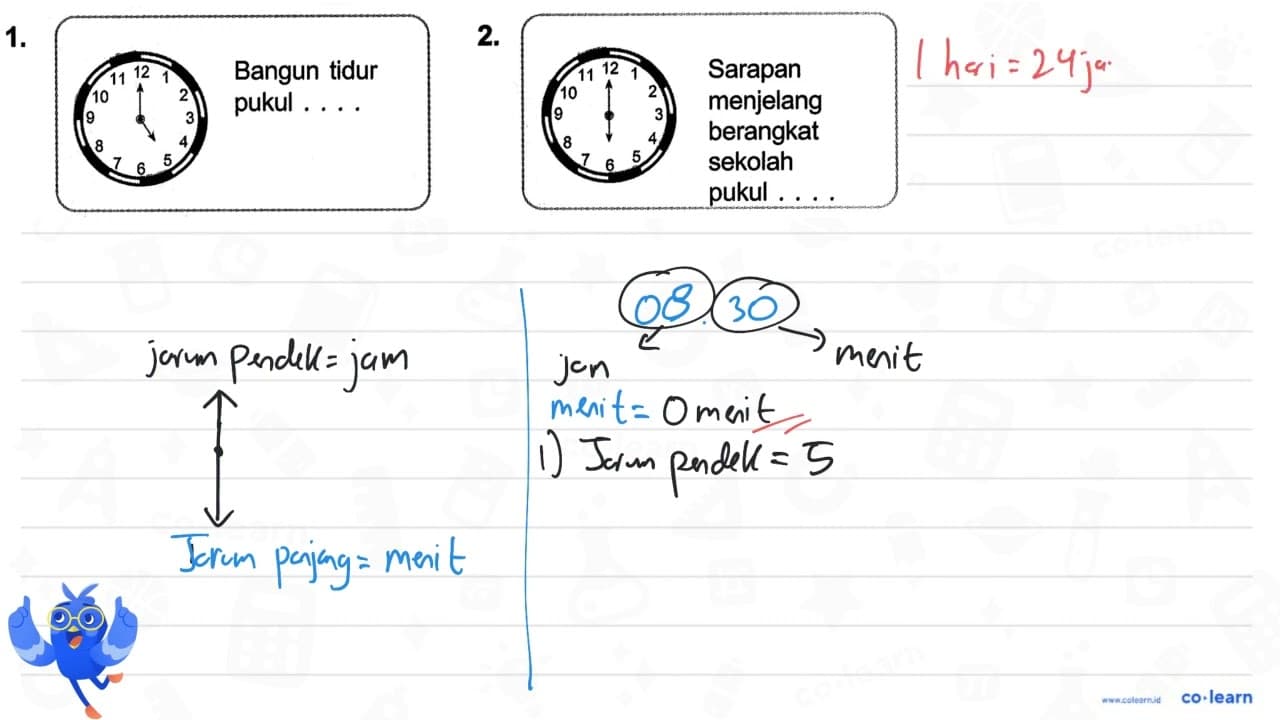 1.
11 12 1
10 2
9 3
8 4
7 6 5
Bangun tidur
pukul . . . .
2.
11 12 1
10 2
9 3
8 4
7 6 5
Sarapan
menjelang
berangkat
sekolah
pukul . . . .
1 hari = 24 ja
jarum pendek = jam
Jarum panjang = menit
08.30
jam
menit
menit = 0 menit
1) Jarum pendek = 5
www.colearn.id
co·learn